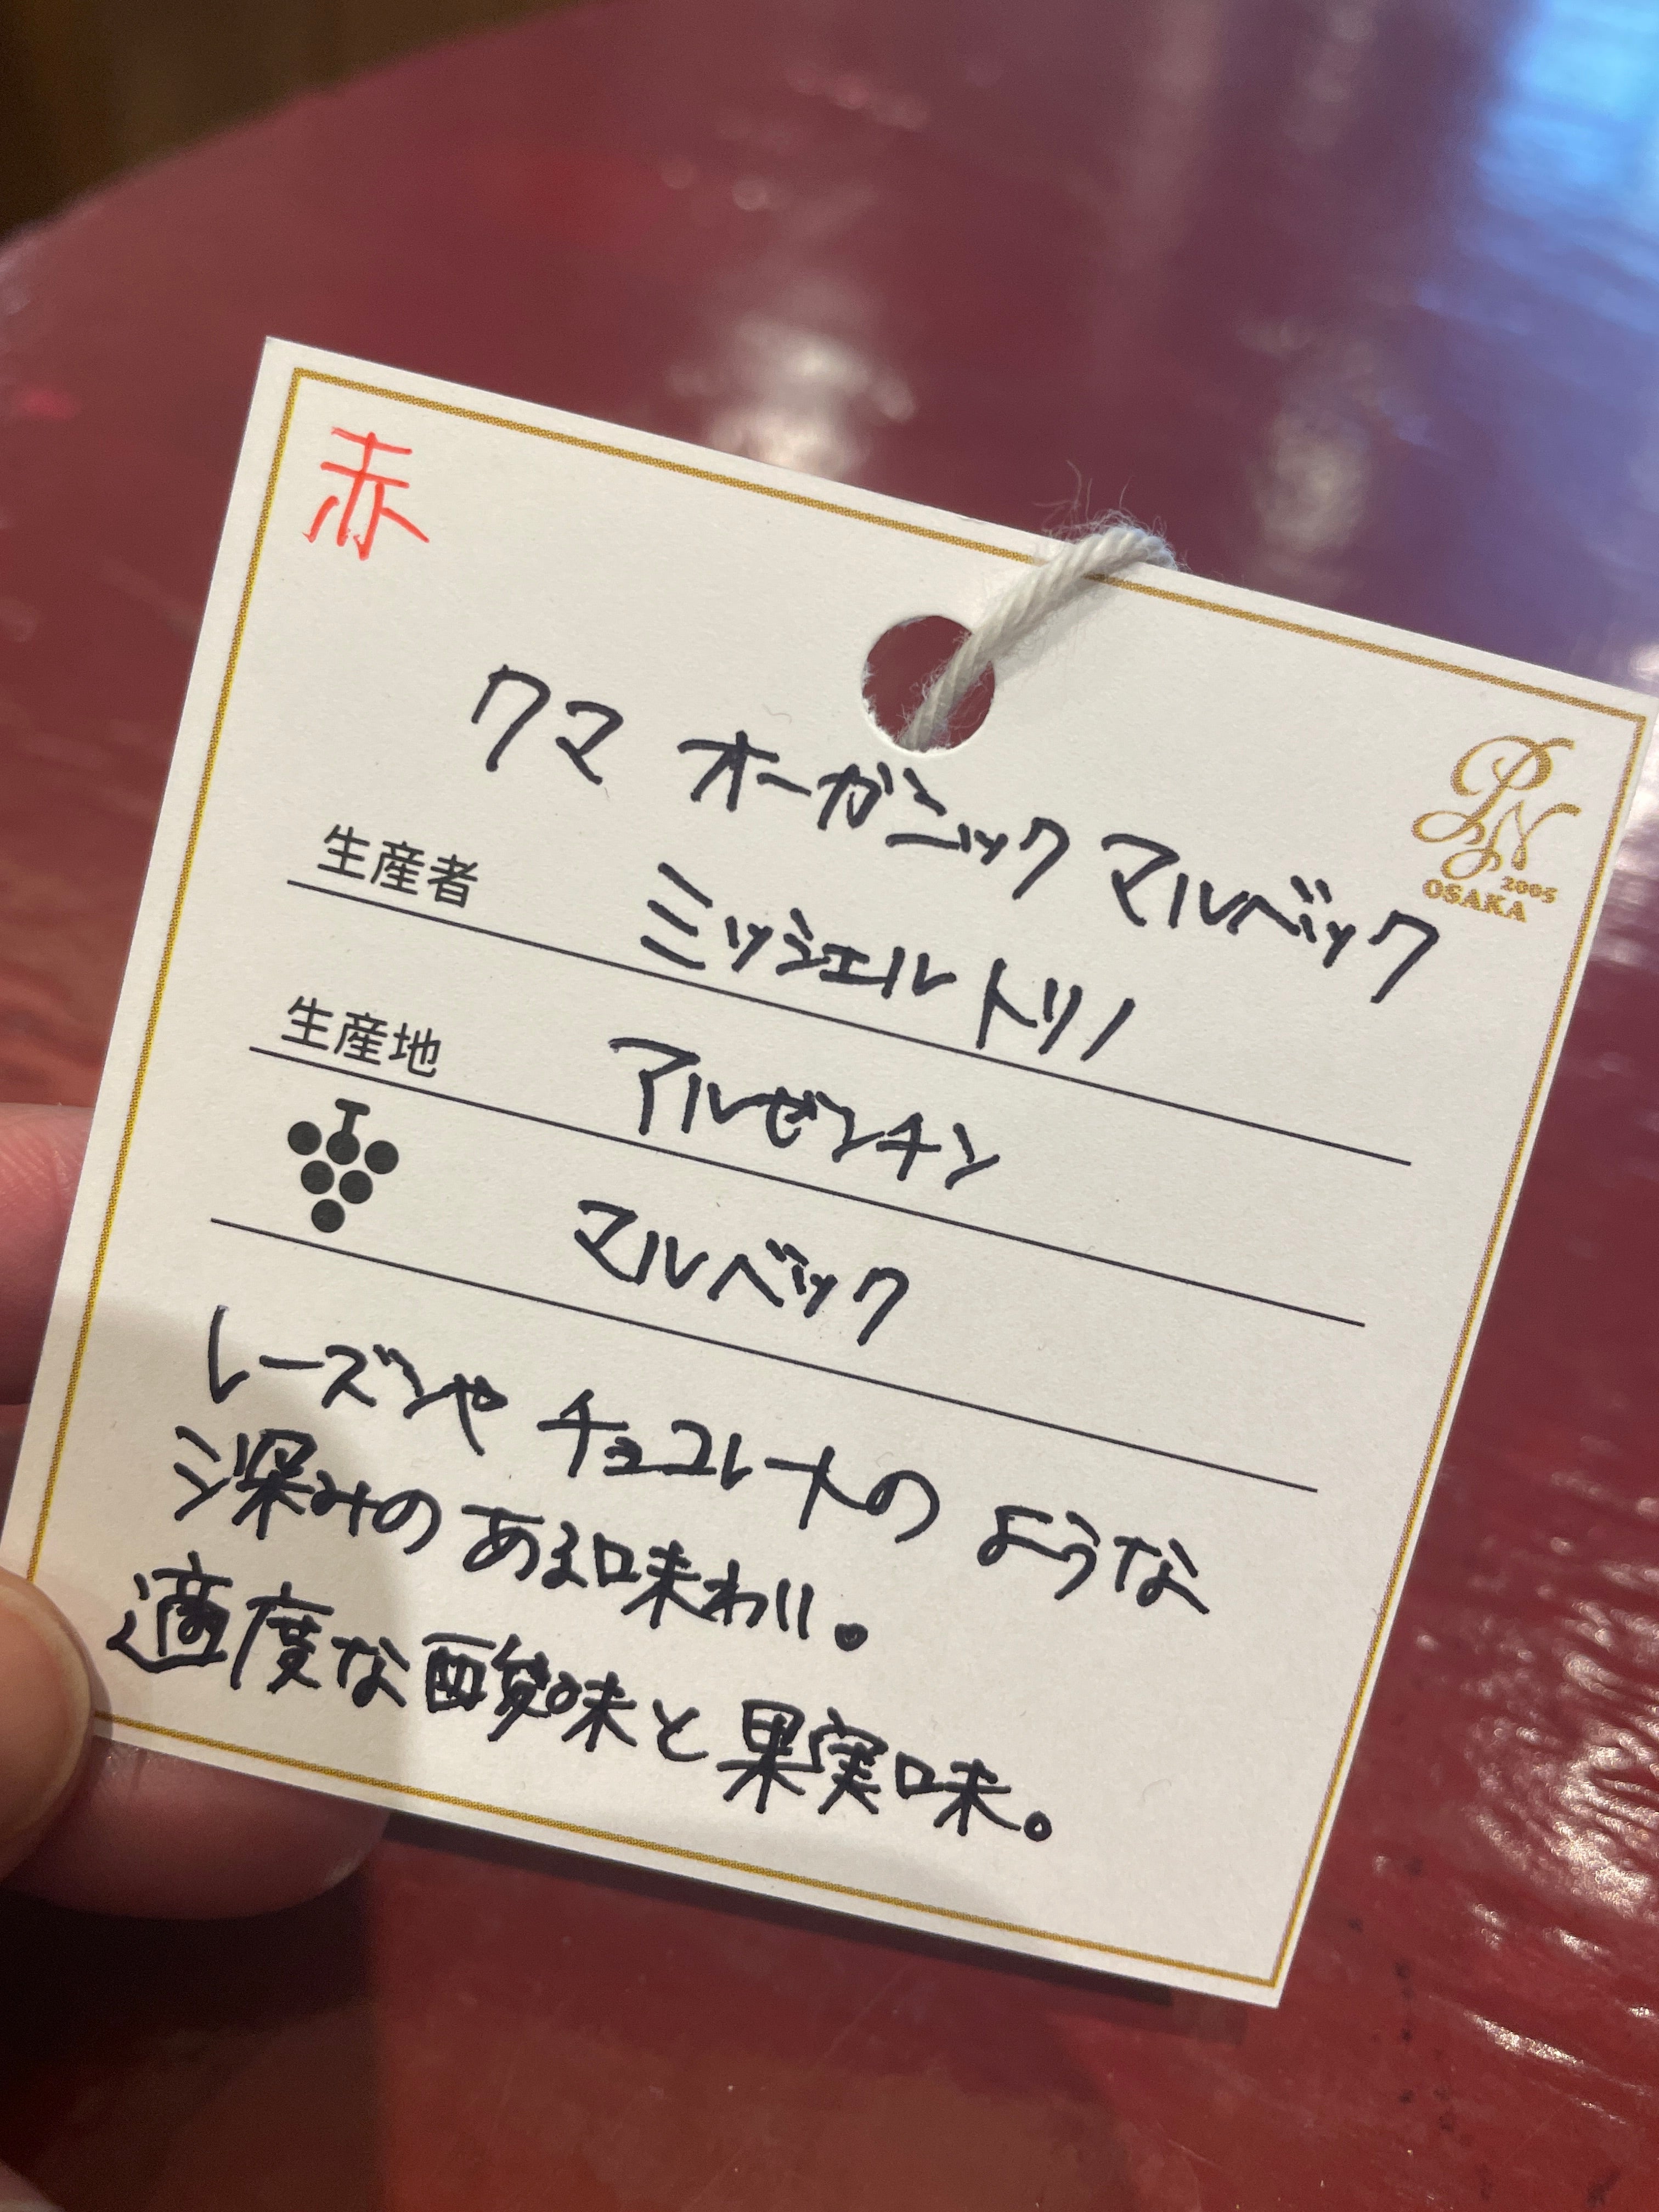 赤
クマ オーガニック マルベック
PN
2005
OSAKA
生産者 ミッシェル トリノ
生産地 アルゼンチン
マルベック
レーズンや チョコレートの ような
深みの ある味わい。
適度な酸味と果実味。